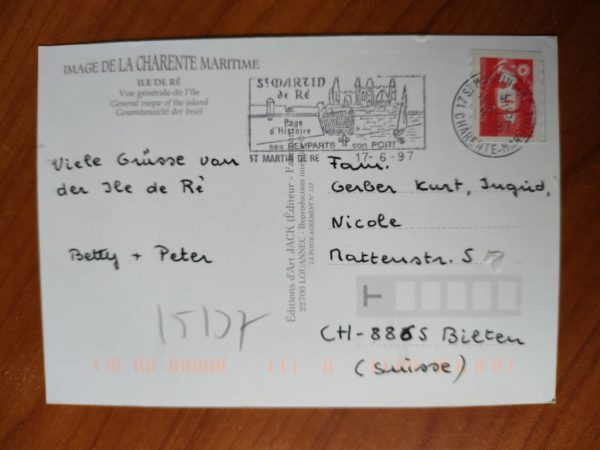 IMAGE DE LA CHARENTE MARITIME
ILE DE RÉ
Vue générale de l'île
General viagie of the island
Gesamtansicht der Insel
St MARTIN
de Ré
Page
d'Histoire
ses REMPARTS son PORT
ST MARTIN DE RE 17-6-97
17 ST
CHARENTE-M
Viele Grüsse von
der Ile de Ré
Betty + Peter
15137
Éditions d'Art JACK (Éditeur
22700 LOUANNEC - Reproduction
LA POSTE AGRÉMENT N° 132
Fam.
Gerber Kurt, Ingrid,
Nicole
Mattenstr. 5
T
CH-8865 Bilten
(Suisse)